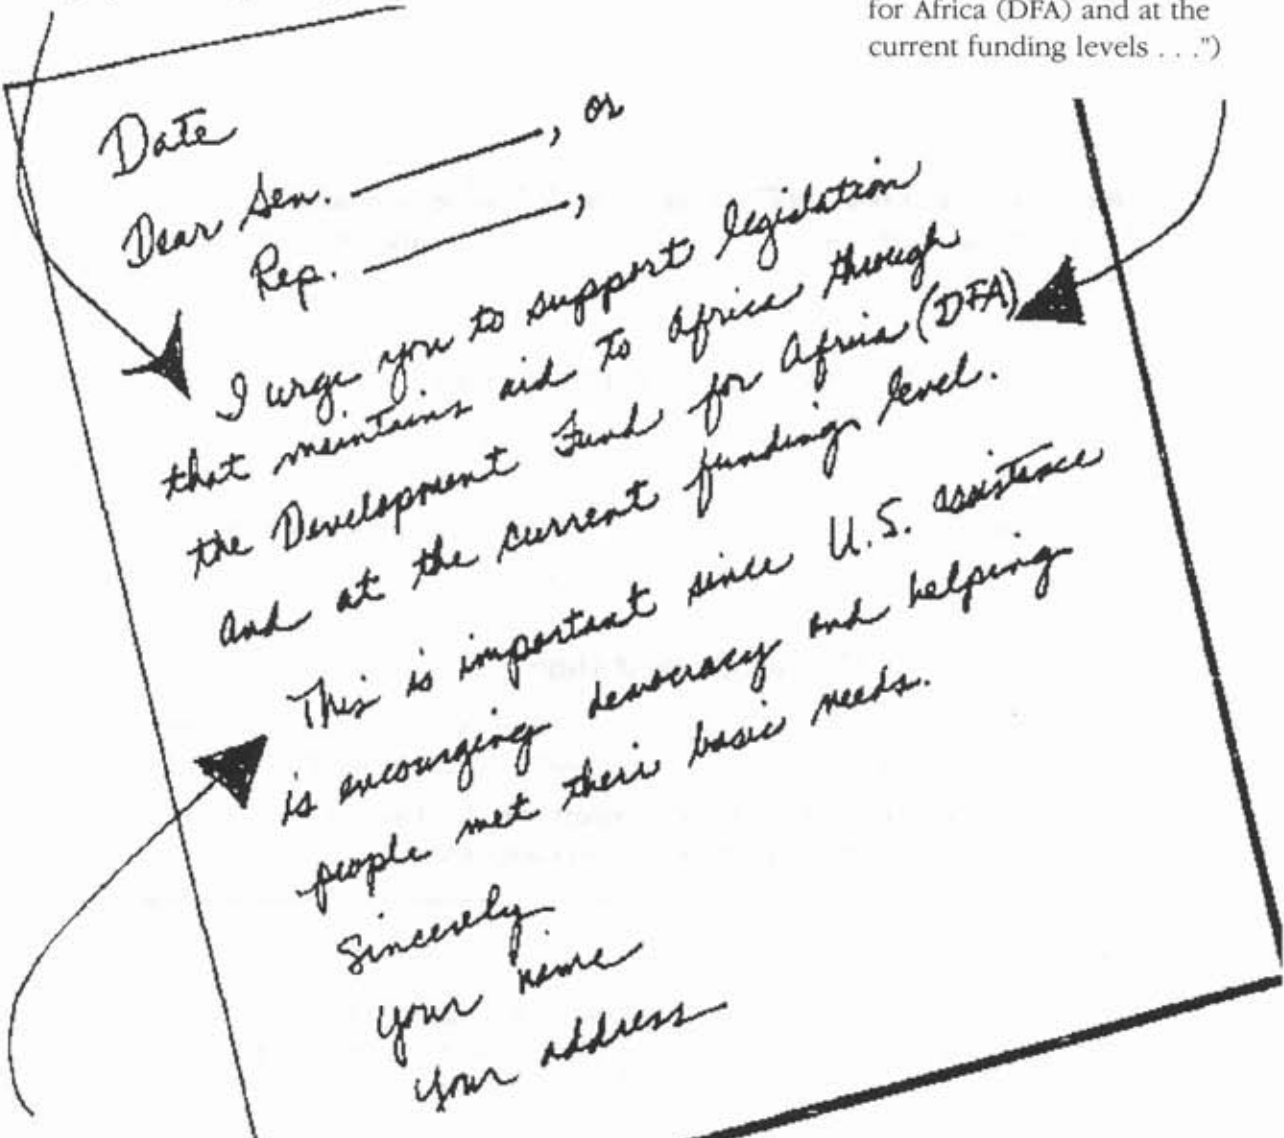 for Africa (DFA) and at the
current funding levels . . .")
Date
Dear Sen. ________, or
Rep. ________,
I urge you to support legislation
that maintains aid to Africa through
the Development Fund for Africa (DFA)
and at the current funding level.
This is important since U.S. assistance
is encourging democracy and helping
people met their basic needs.
Sincerely
your name
your address